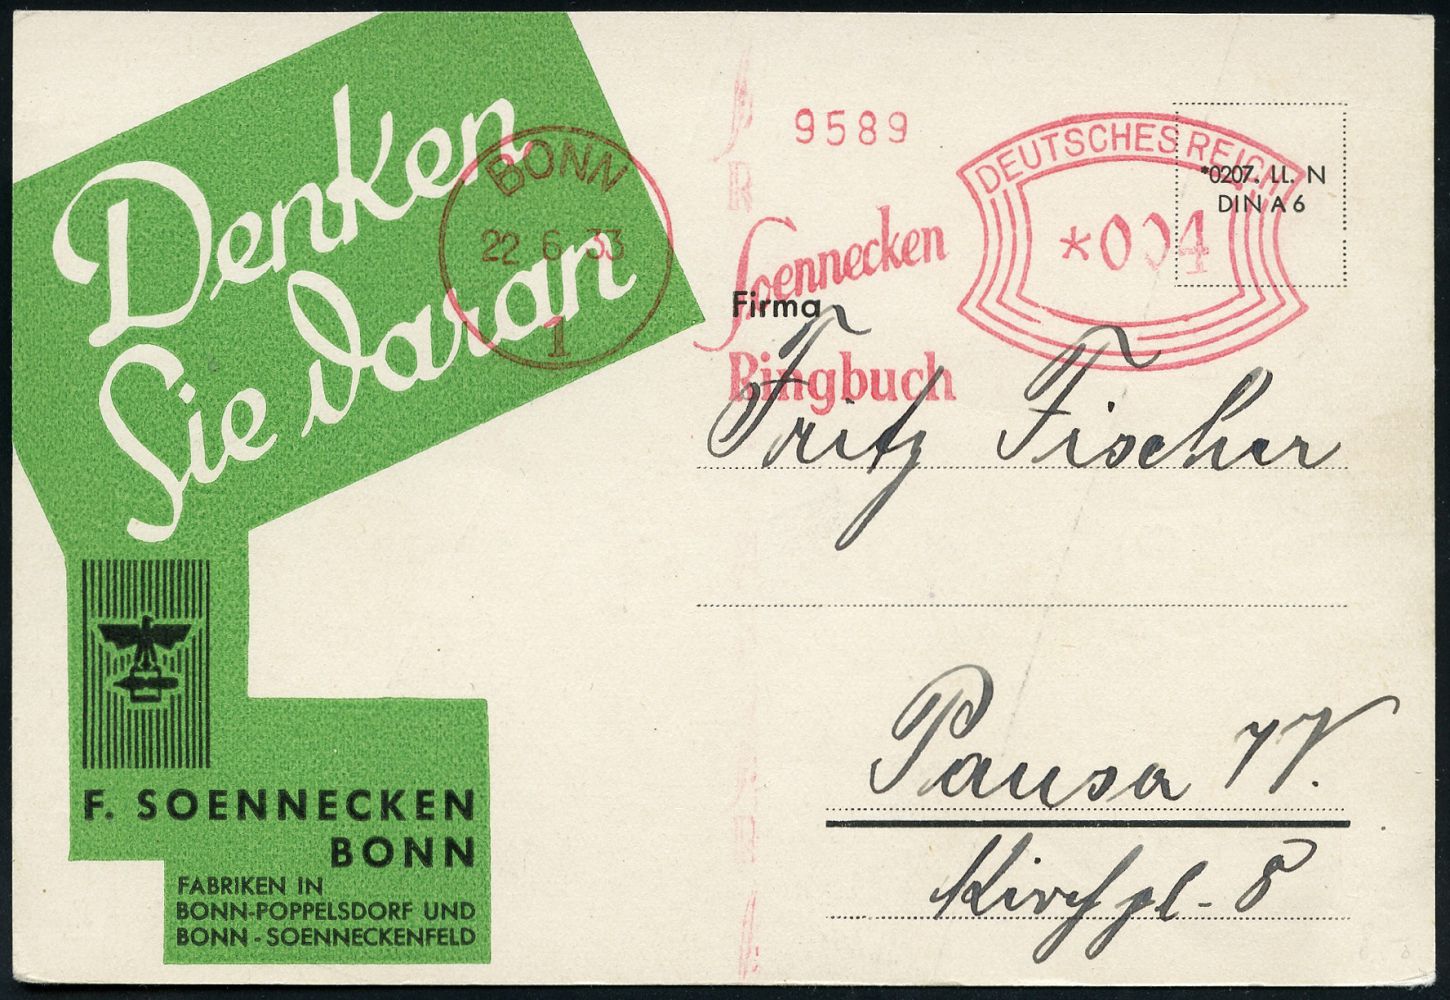 Denken
Sie daran
BONN
22.6.33
1
9589
Soennecken
Ringbuch
DEUTSCHES REICH
*004
*0207. LL. N
DIN A 6
Firma
Fritz Fischer
Pausa
Kirchpl. 8
F. SOENNECKEN
BONN
FABRIKEN IN
BONN-POPPELSDORF UND
BONN - SOENNECKENFELD